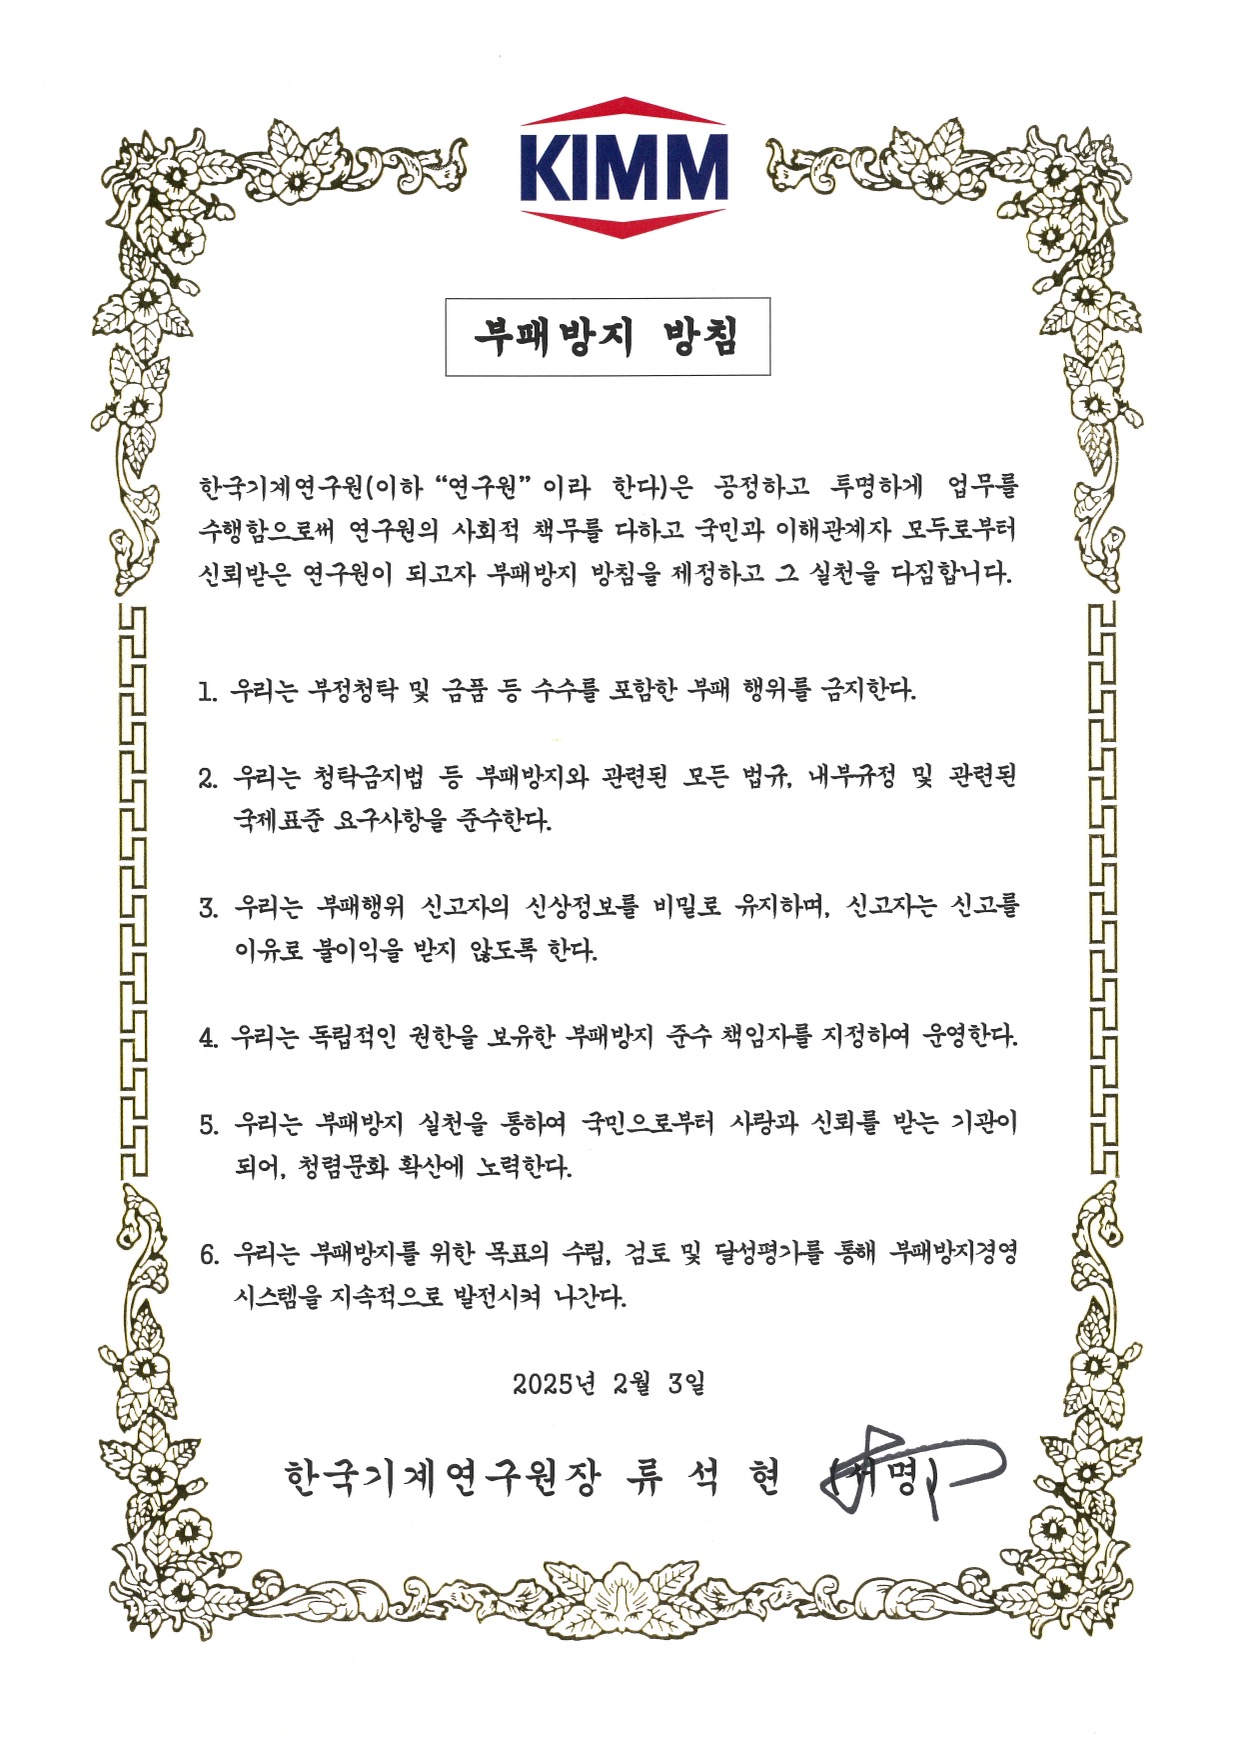 KIMM
부패방지 방침
한국기계연구원(이하 “연구원” 이라 한다)은 공정하고 투명하게 업무를
수행함으로써 연구원의 사회적 책무를 다하고 국민과 이해관계자 모두로부터
신뢰받은 연구원이 되고자 부패방지 방침을 제정하고 그 실천을 다짐합니다.
1. 우리는 부정청탁 및 금품 등 수수를 포함한 부패 행위를 금지한다.
2. 우리는 청탁금지법 등 부패방지와 관련된 모든 법규, 내부규정 및 관련된
국제표준 요구사항을 준수한다.
3. 우리는 부패행위 신고자의 신상정보를 비밀로 유지하며, 신고자는 신고를
이유로 불이익을 받지 않도록 한다.
4. 우리는 독립적인 권한을 보유한 부패방지 준수 책임자를 지정하여 운영한다.
5. 우리는 부패방지 실천을 통하여 국민으로부터 사랑과 신뢰를 받는 기관이
되어, 청렴문화 확산에 노력한다.
6. 우리는 부패방지를 위한 목표의 수립, 검토 및 달성평가를 통해 부패방지경영
시스템을 지속적으로 발전시켜 나간다.
2025년 2월 3일
한국기계연구원장 류 석 현 (서명)